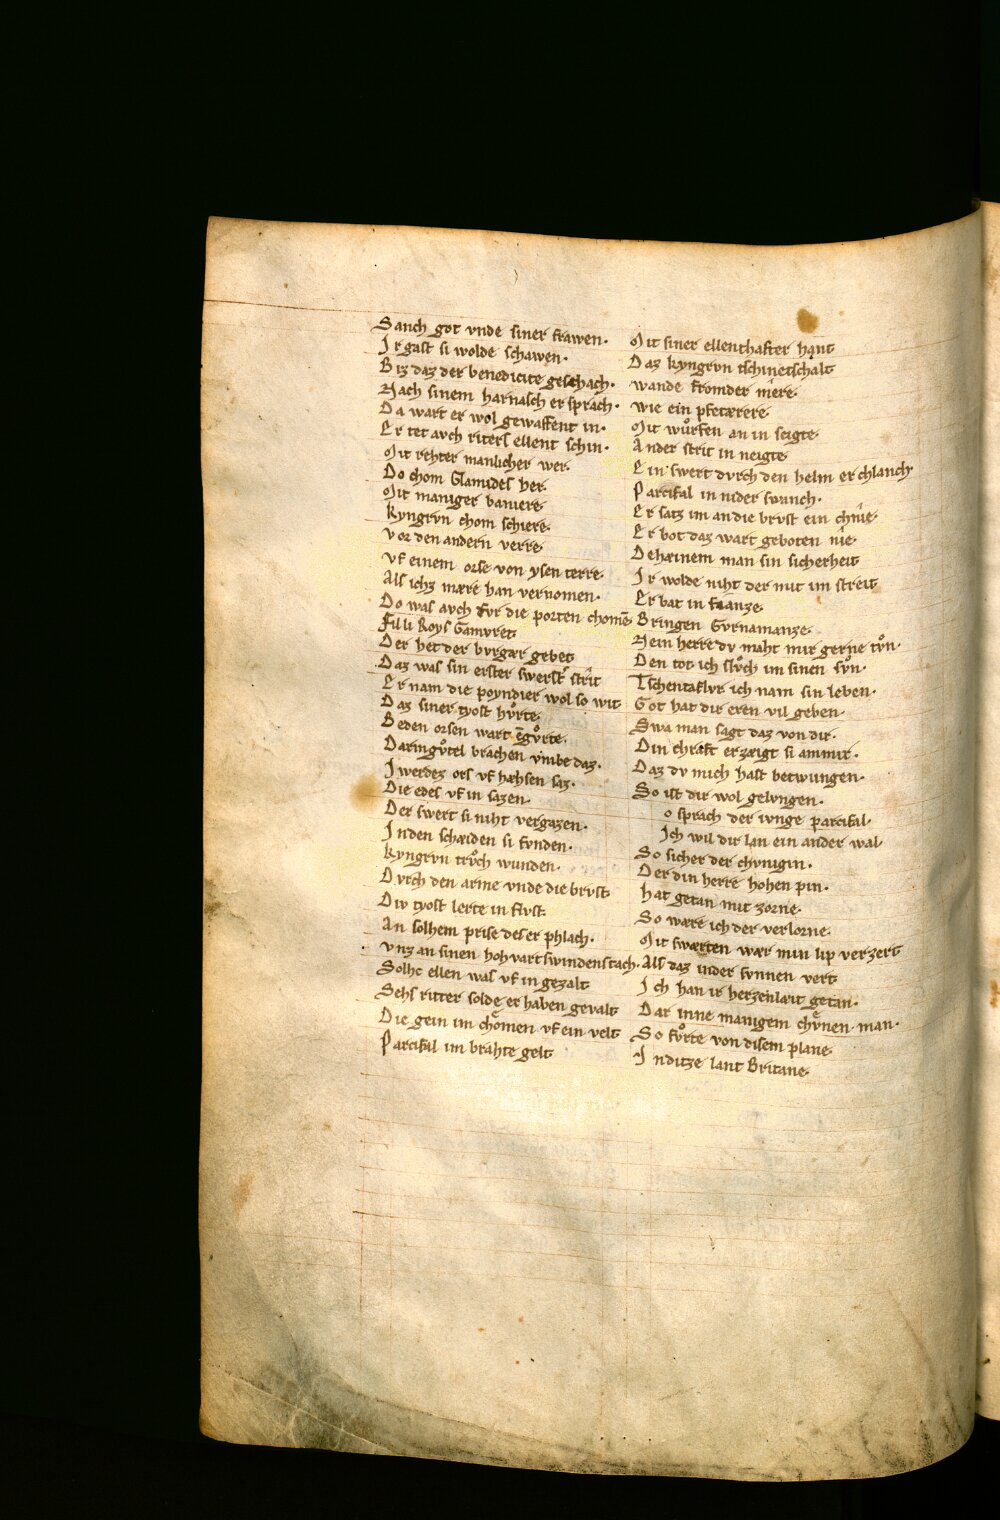 Sanch got vnde siner frawen·
Ir gast si wolde schawen·
Biz daz der benedicite geschach·
Nach sinem harnasch er sprach·
Da wart er wol gewaffent in·
Er tet avch riters ellent schin·
Mit rehter manlicher wer·
Do chom Glamides her·
Mit maniger baniere·
Kyngrvn chom schiere·
Vor den andern verre·
Vf einem orse von ysen terre·
Als ichz mære han vernomen·
Do was avch fvr die porten chomē
Filli Roys Gamvret·
Der het der bvrgær gebet
Daz was sin erster swerst strit
Er nam die poyndier wol so wit
Daz siner tyost hvͦrte·
Beden orsen wart ēgvͦrte·
Darmgvͤtel brachen vmbe daz·
Iwerdez ors vf hæhsen saz·
Die edes vf in sazen·
Der swert si niht vergazen·
In den schæiden si fvnden·
Kyngrvn trvͦch wunden·
Dvrch den arme vnde die brvst
Div tyost lerte in flvst
An solhem prise des er phlach·
Vnz an sinen hohvart swindens tach·
Solhc ellen was vf in gezalt
Sehs ritter solde er haben gevalt
Die gein im chomen vf ein velt
Parcifal im brahte gelt
Mit siner ellenthafter hant
Daz kyngrvn tschinetschalt
wande fromder mere·
wie ein pfetærere
Mit wuͤrfen an in seigte·
Ander strit in neigte·
Ein swert dvrch den helm erchlanch·
Parcifal in nider swanch·
Er satz im an die brvst ein chnîe·
Er bot daz wart geboten nîe·
Dehæinem man sin sicherheit
Ir wolde niht der mit im streit
Er bat in fianze·
Bringen Gvrnamanze·
Nein herre dv maht mir gerne tvͦn·
Den tot ich slvͦch im sinen svͦn·
Tschentaflvr ich nam sin leben·
Got hat dir eren vil geben·
Swa man sagt daz von dir·
Din chraft erzæigt si an mir·
Daz dv mich hast betwungen·
So ist dir wol gelvngen·
o sprach der ivnge parcifal·
Ich wil dir lan ein ander wal·
So sicher der chvnigin·
Der din herre hohen pin·
hat getan mit zorne·
So wære ich der verlorne·
Mit swærten wær min lip verzert
Als daz inder svnnen vert
Ich han ir herzenlæit getan·
Dar inne manigem chvͤnen man·
So fvͦrte von disem plane
In ditze lant Britane·